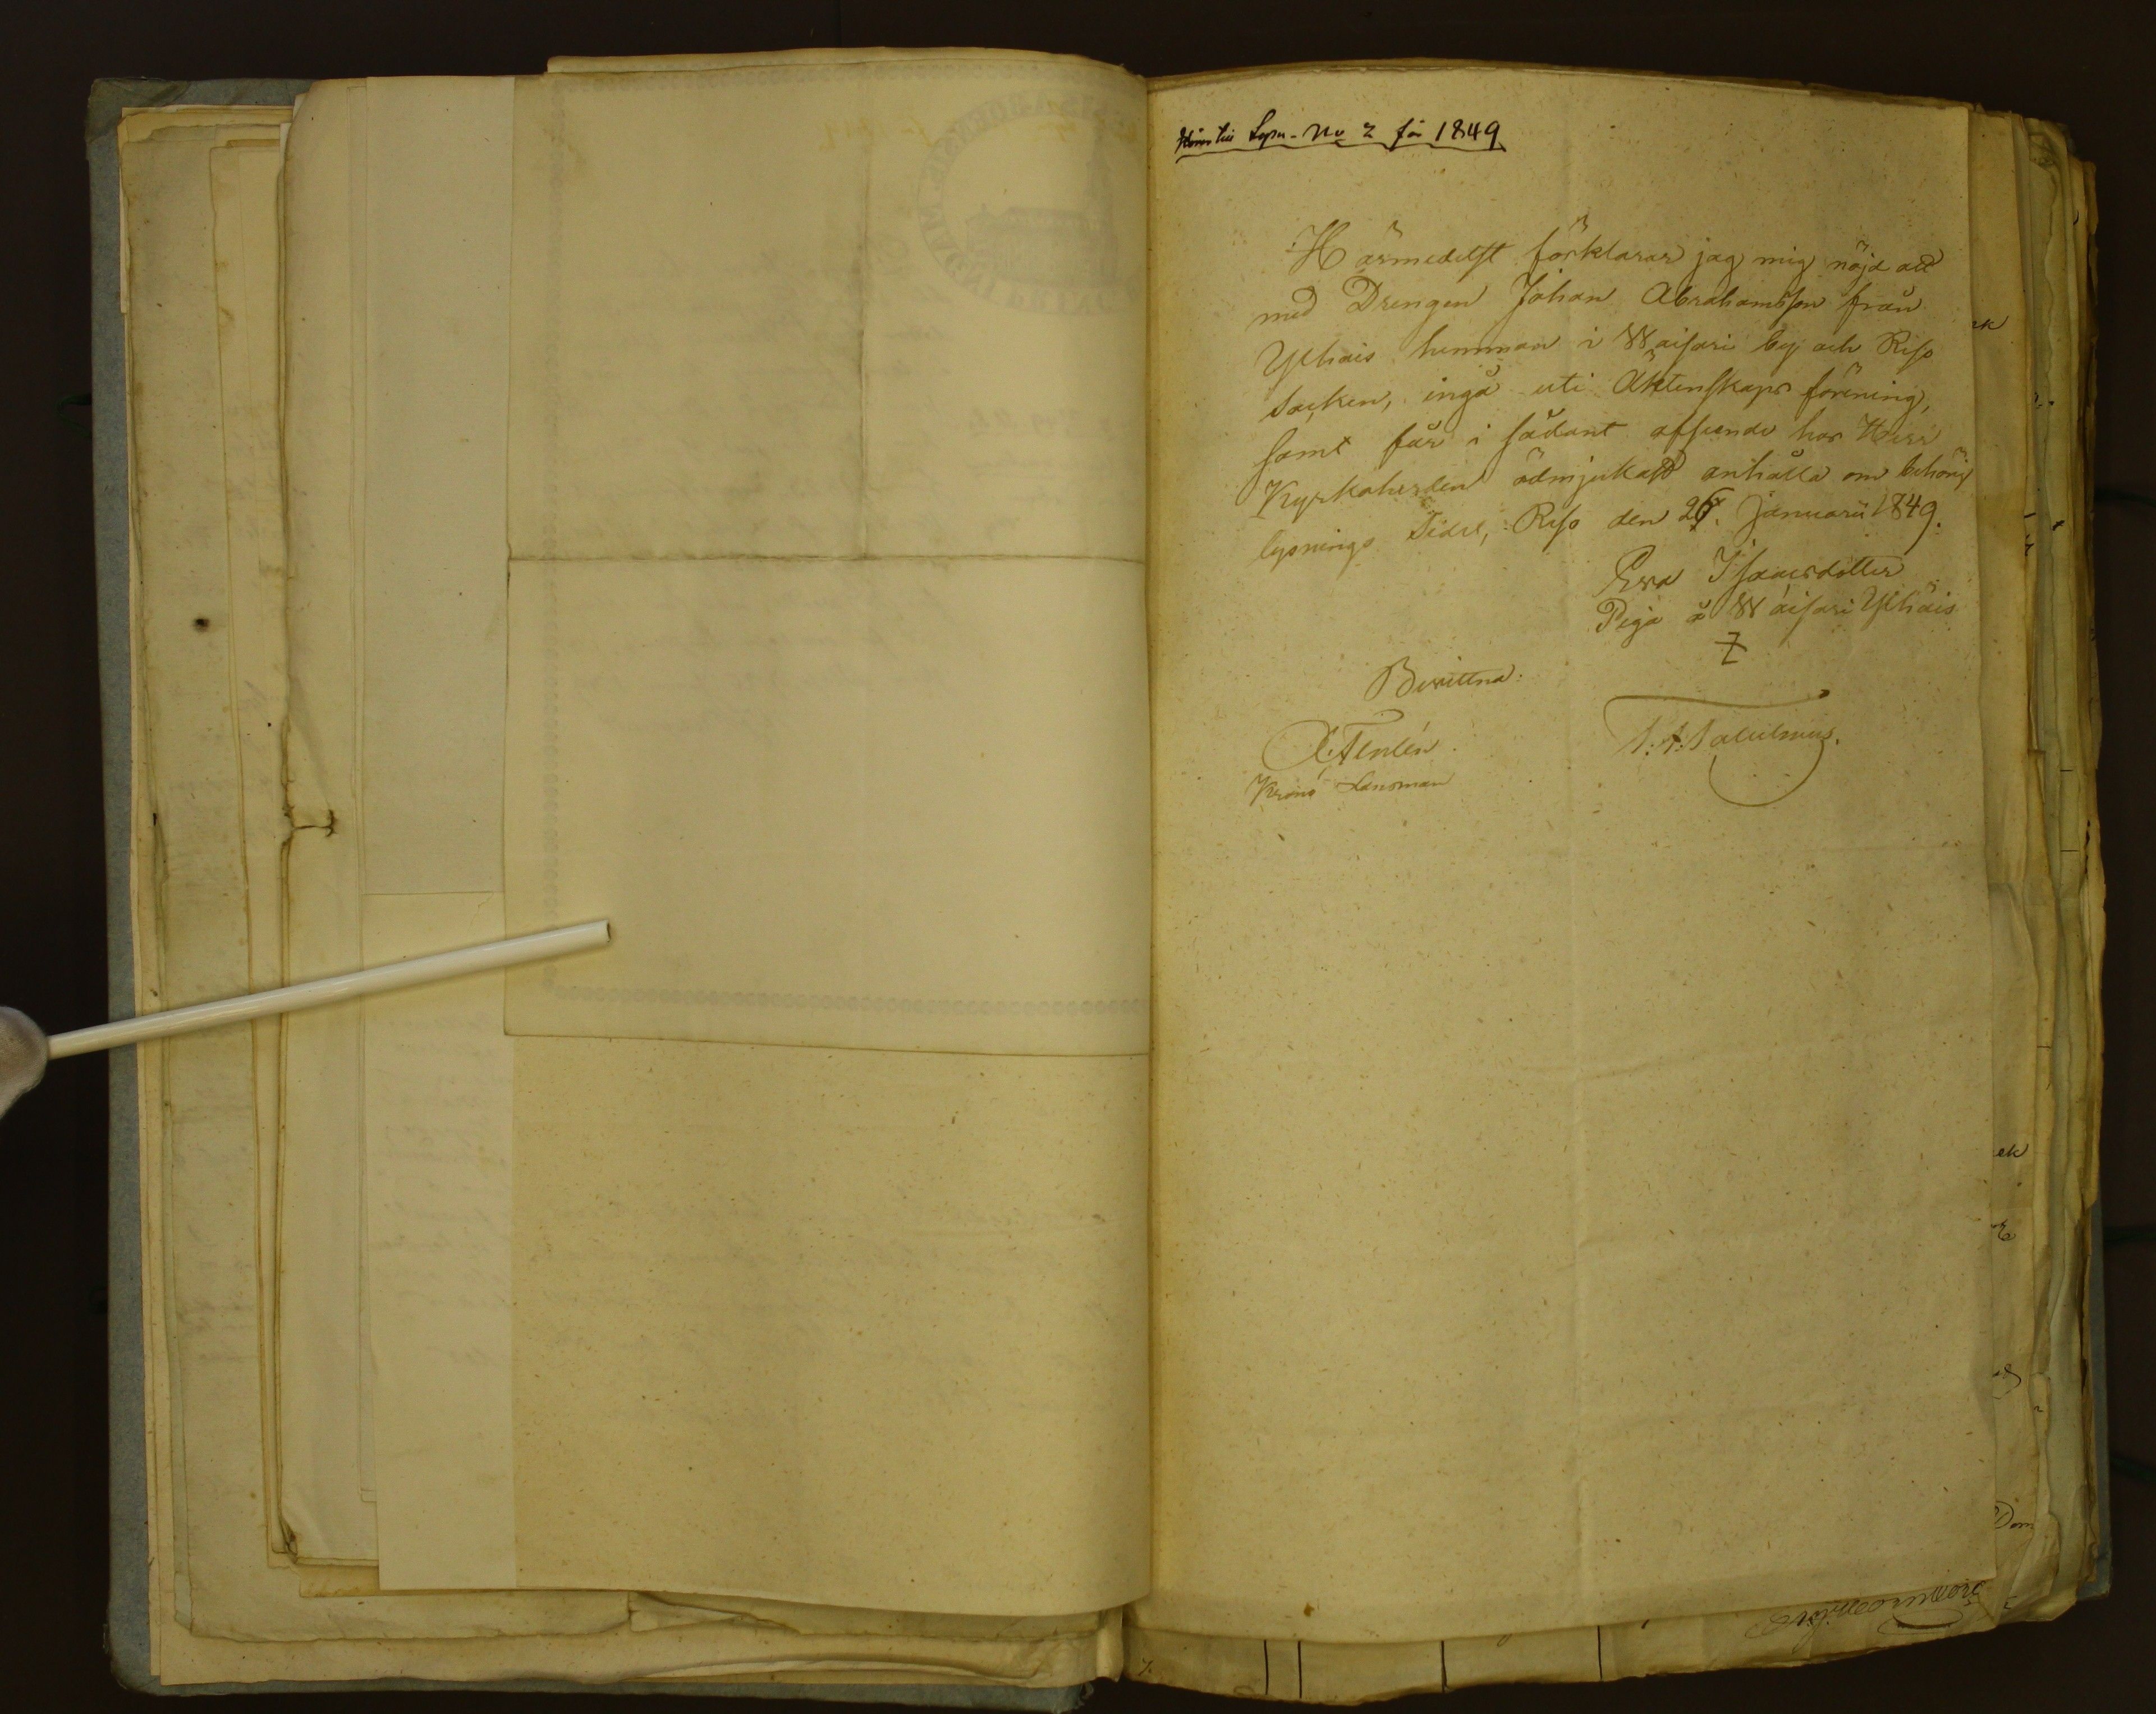 Hörer till Lysn. No 2 för 1849
Härmedelst förklarar jag mig nöjd att
med Drengen Johan Abrahamsson från
Ylhäis hemman i Waisari by och Reso
Socken, ingå uti Äktenskaps förening,
samt får i sådant afseende hos Herr
Kyrkoherden ödmjukast anhålla om behörig
lysnings Sedel, Reso den 26. Januarii 1849.
Ewa Isaacsdotter
Piga å Waisari Ylhäis
Bevittna:
Krono Länsman